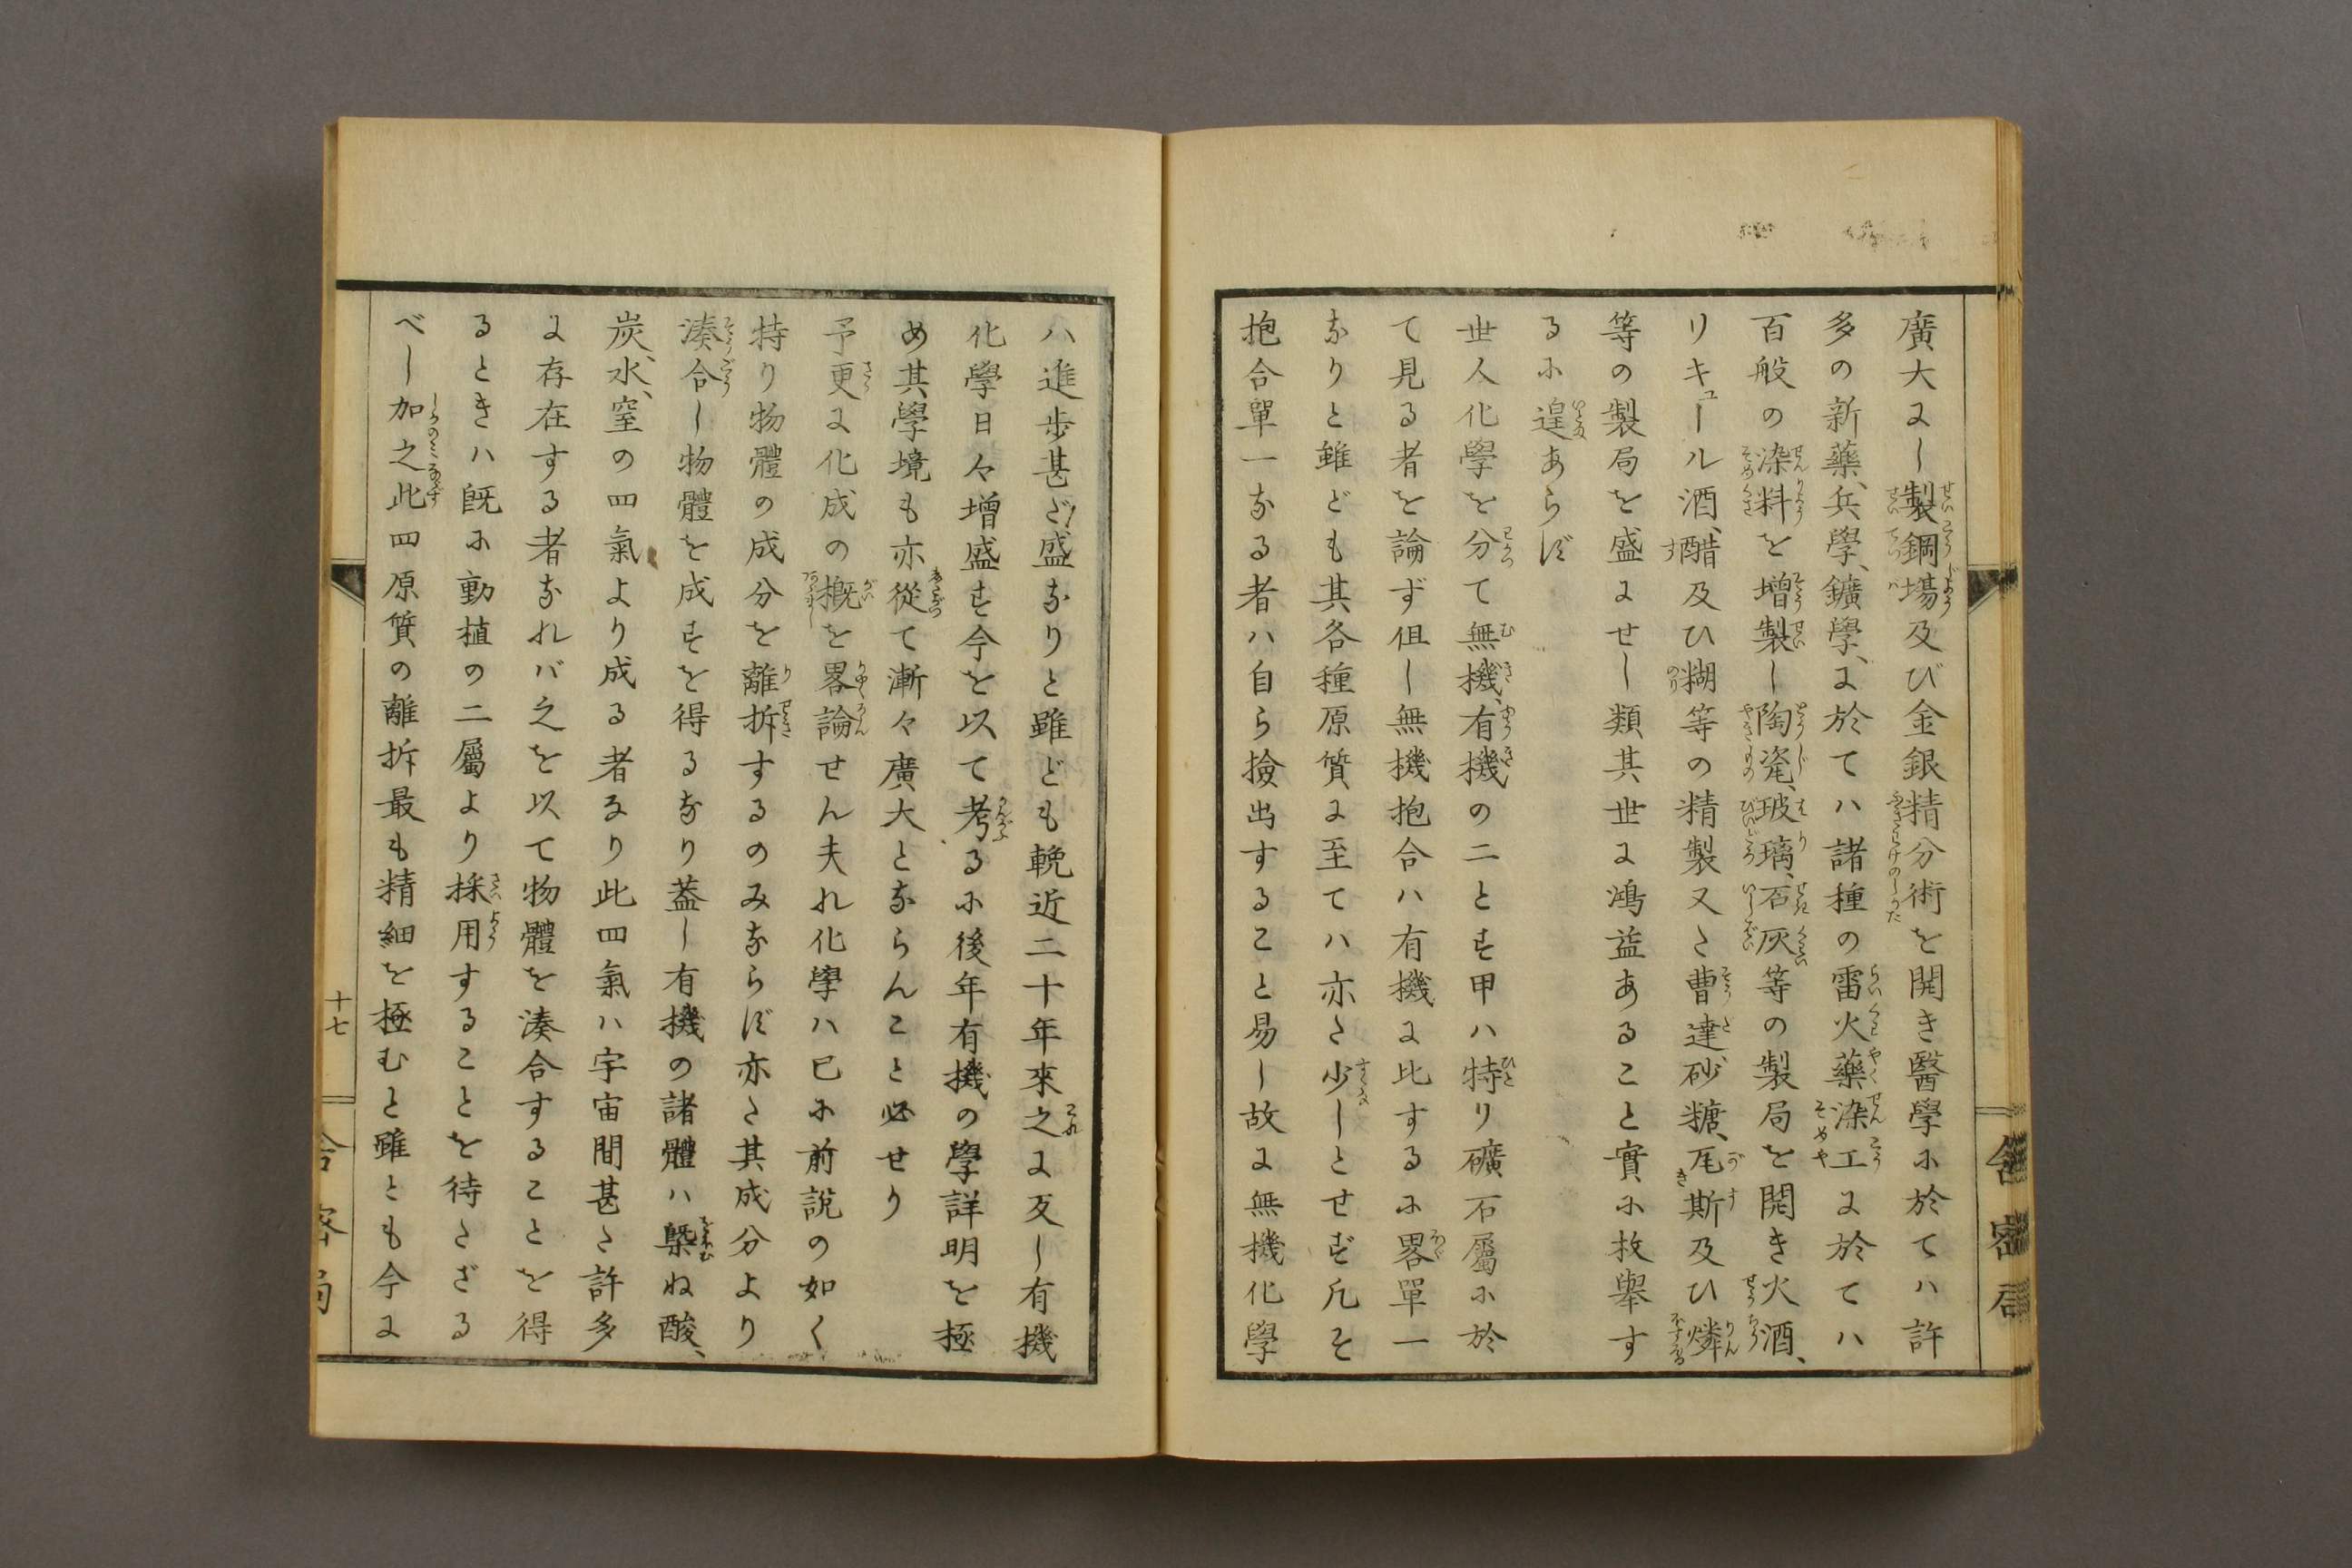 廣大にし製鋼場及び金銀精分術を開き醫學に於てハ許
多の新藥、兵學、鑛學、に於てハ諸種の雷火藥染工に於てハ
百般の染料を増製し陶瓷、玻璃、石灰等の製局を開き火酒、
リキュール酒、醋及ひ糊等の精製又た曹達砂糖、瓦斯及ひ燐
等の製局を盛にせし類其世に鴻益あること實に枚擧す
るに遑あらず
世人化學を分て無機、有機の二とす甲ハ特り礦石屬に於
て見る者を論ず但し無機抱合ハ有機に比するに畧單一
なりと雖ども其各種原質に至てハ亦た少しとせず凡そ
抱合單一なる者ハ自ら撿出すること易し故に無機化學
ハ進歩甚だ盛なりと雖ども輓近二十年來之に反し有機
化學日々增盛す今を以て考るに後年有機の學詳明を極
め其學境も亦從て漸々廣大とならんこと必せり
予更に化成の概を畧論せん夫れ化學ハ已に前説の如く
持り物體の成分を離拆するのみならず亦た其成分より
湊合し物體を成すを得るなり蓋し有機の諸體ハ槩ね酸、
炭、水、窒の四氣より成る者なり此四氣ハ宇宙間甚た許多
に存在する者なれバ之を以て物體を湊合することを得
るときハ既に動植の二屬より採用することを待たざる
べし加之此四原質の離拆最も精細を極むと雖とも今に
十七
舎密局